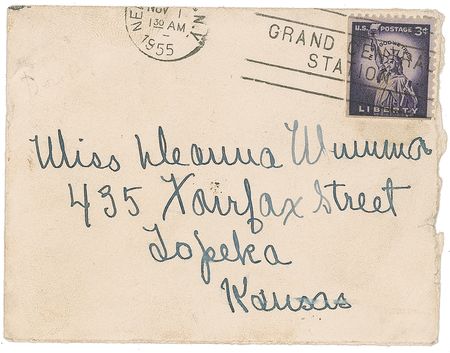 NOV 1
1 30 AM
1955
N.Y.
GRAND CENTRAL
STATION
U.S. POSTAGE 3¢
IN GOD WE TRUST
LIBERTY
Miss Deanna Mumma
435 Fairfax Street
Topeka
Kansas